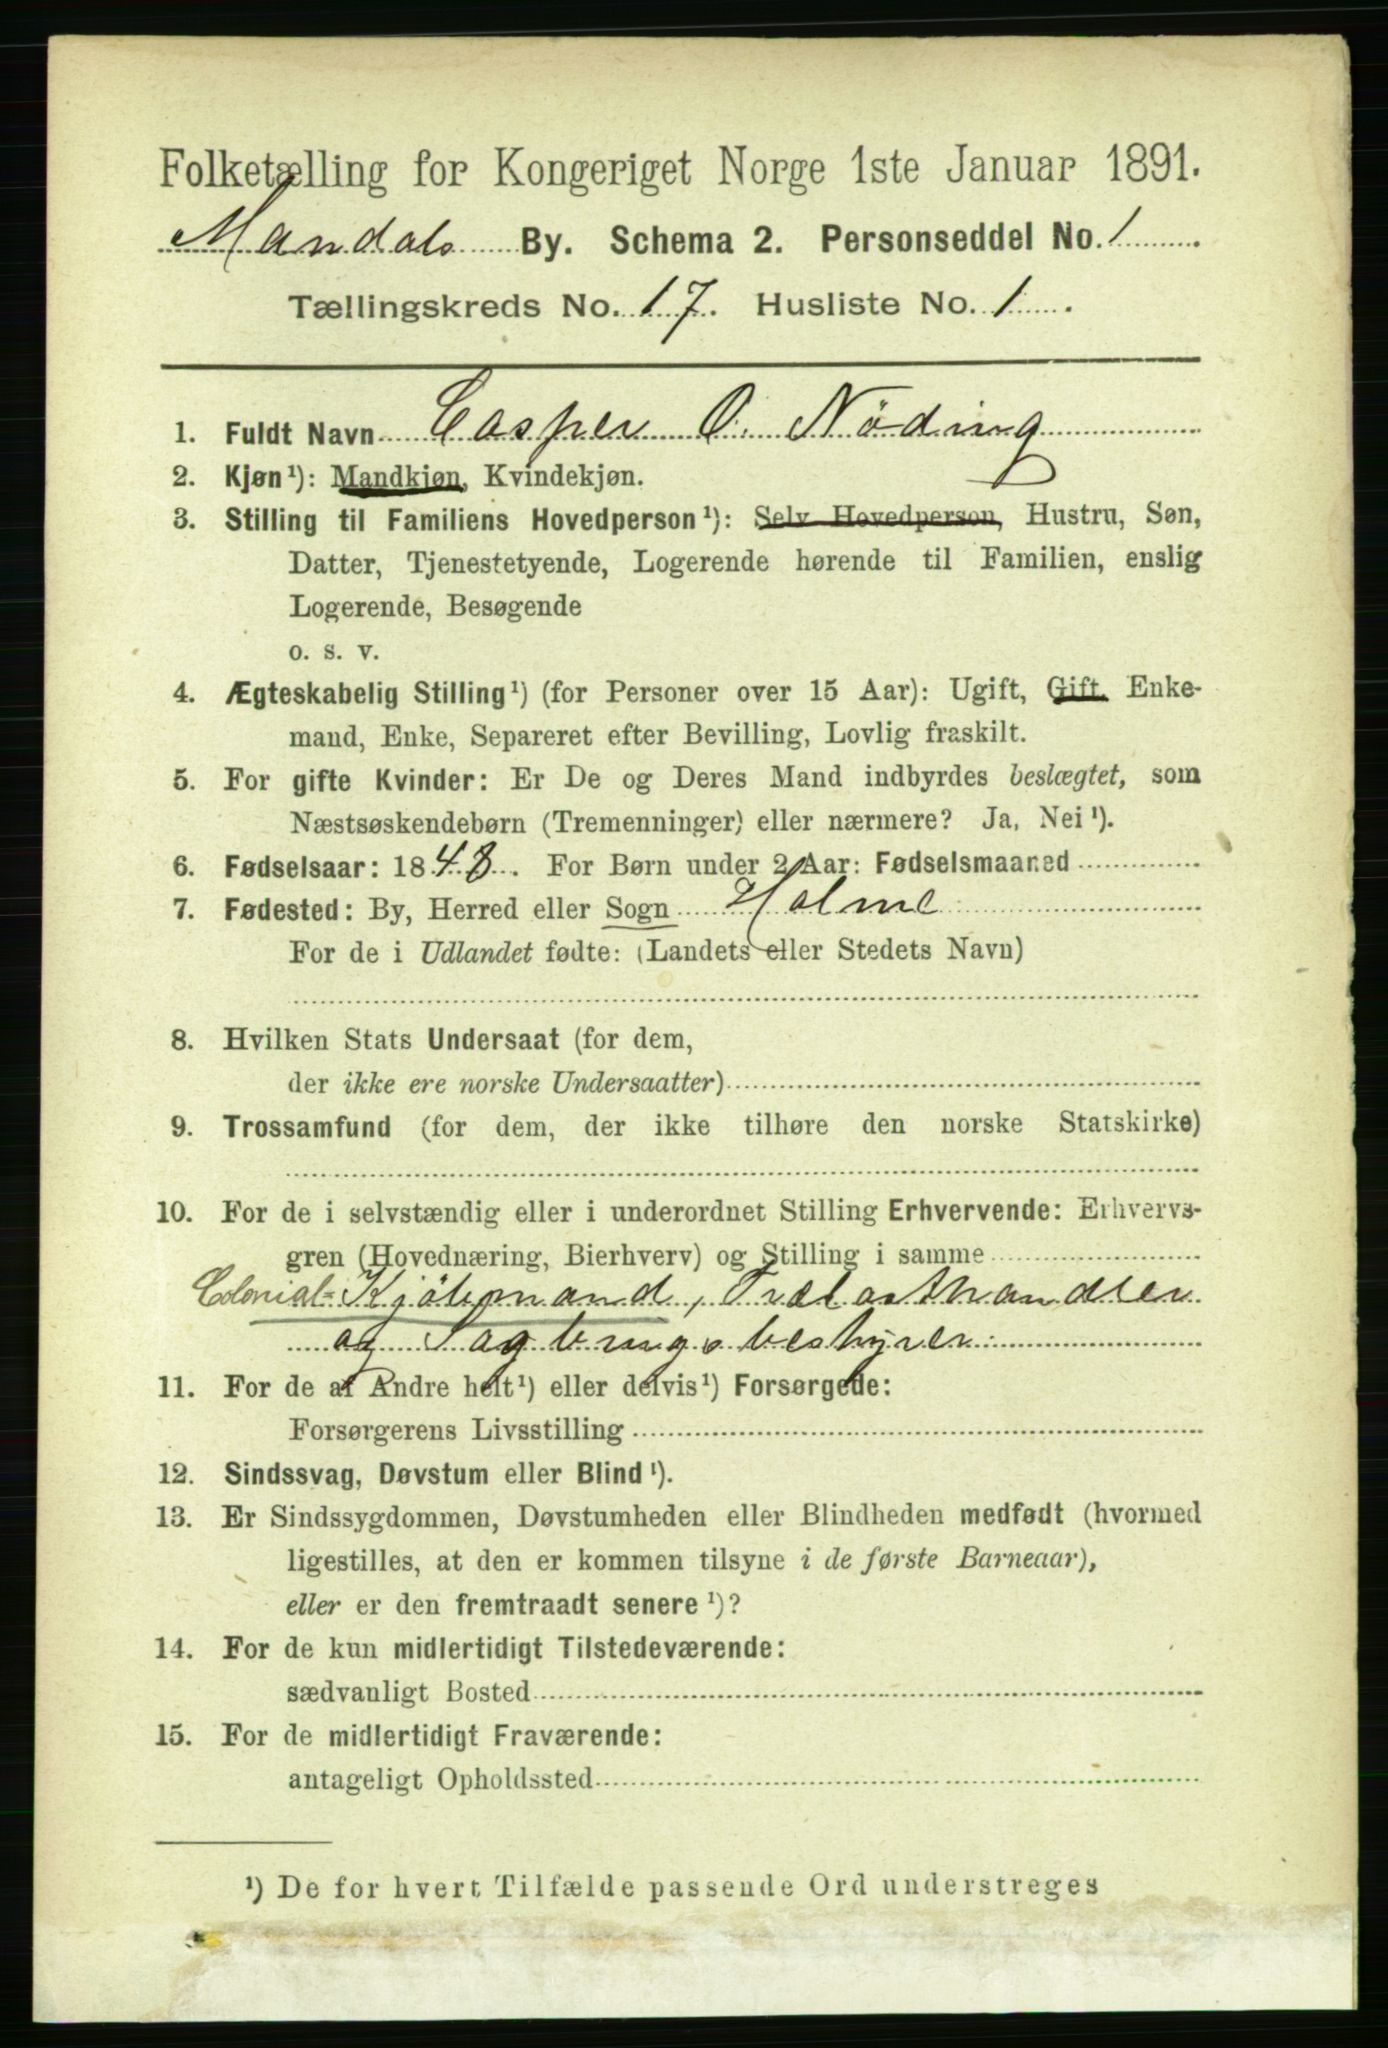 Folketælling for Kongeriget Norge 1ste Januar 1891.
Mandals By. Schema 2. Personseddel No. 1
Tællingskreds No. 17. Husliste No. 1.
1. Fuldt Navn Casper O. Nöding
2. Kjøn¹): Mandkjøn, Kvindekjøn.
3. Stilling til Familiens Hovedperson¹): Selv Hovedperson, Hustru, Søn,
Datter, Tjenestetyende, Logerende hørende til Familien, enslig
Logerende, Besøgende
o. s. v.
4. Ægteskabelig Stilling¹) (for Personer over 15 Aar): Ugift, Gift, Enke-
mand, Enke, Separeret efter Bevilling, Lovlig fraskilt.
5. For gifte Kvinder: Er De og Deres Mand indbyrdes beslægtet, som
Næstsøskendebørn (Tremenninger) eller nærmere? Ja, Nei¹).
6. Fødselsaar: 1848. For Børn under 2 Aar: Fødselsmaaned
7. Fødested: By, Herred eller Sogn Holme
For de i Udlandet fødte: (Landets eller Stedets Navn)
8. Hvilken Stats Undersaat (for dem,
der ikke ere norske Undersaatter)
9. Trossamfund (for dem, der ikke tilhøre den norske Statskirke)
10. For de i selvstændig eller i underordnet Stilling Erhvervende: Erhvervs-
gren (Hovednæring, Bierhverv) og Stilling i samme
Colonial-Kjöbmand, Trælasthandler
og Sagbrugsbestyrer
11. For de af Andre helt¹) eller delvis¹) Forsørgede:
Forsørgerens Livsstilling
12. Sindssvag, Døvstum eller Blind¹).
13. Er Sindssygdommen, Døvstumheden eller Blindheden medfødt (hvormed
ligestilles, at den er kommen tilsyne i de første Barneaar),
eller er den fremtraadt senere¹)?
14. For de kun midlertidigt Tilstedeværende:
sædvanligt Bosted
15. For de midlertidigt Fraværende:
antageligt Opholdssted
¹) De for hvert Tilfælde passende Ord understreges